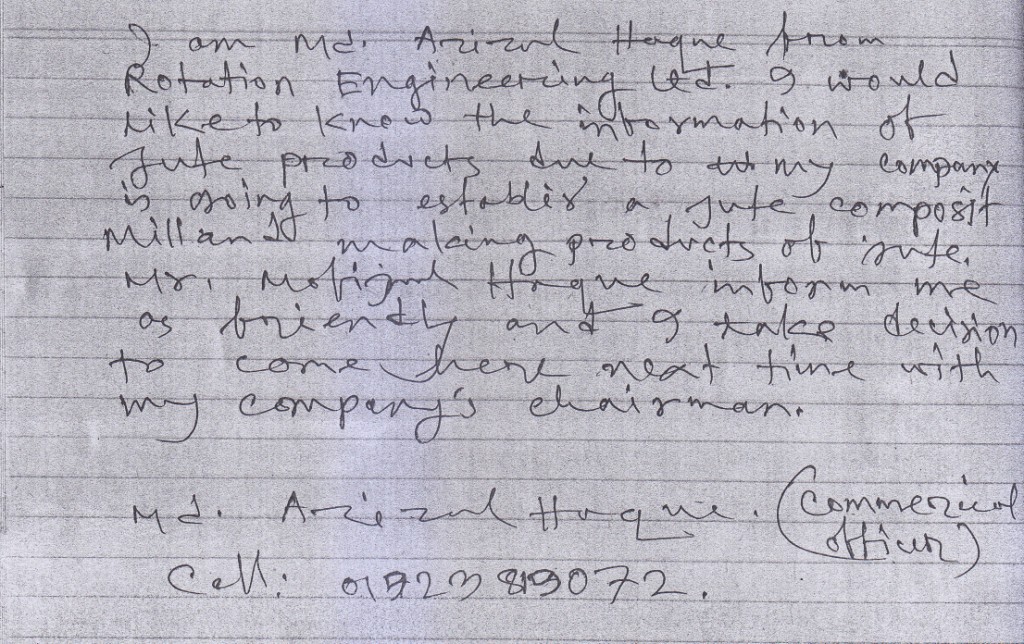 I am Md. Azizul Haque from
Rotation Engineering Ltd. I would
like to know the information of
Jute products due to my company
is going to establis a jute composit
Mill and making products of jute.
Mr. Mofizul Haque inform me
as friendly and I take decision
to come here next time with
my company's chairman.
Md. Azizul Haque. (Commercial
officer)
Cell: 01923819072.